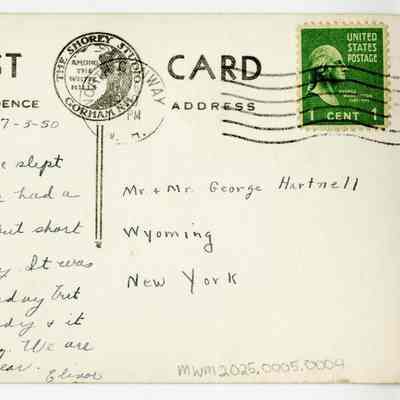 ST CARD
THE SHOREY STUDIO
AMONG
THE
WHITE
HILLS
GORHAM N.H.
CONWAY
PM
UNITED
STATES
POSTAGE
1 CENT 1
DENCE
ADDRESS
7-3-50
e slept
had a
but short
y. It was
& it
. We are
ear.
Elinor
Mr & Mr. George Hartnell
Wyoming
New York
MWM2025.0005.0009